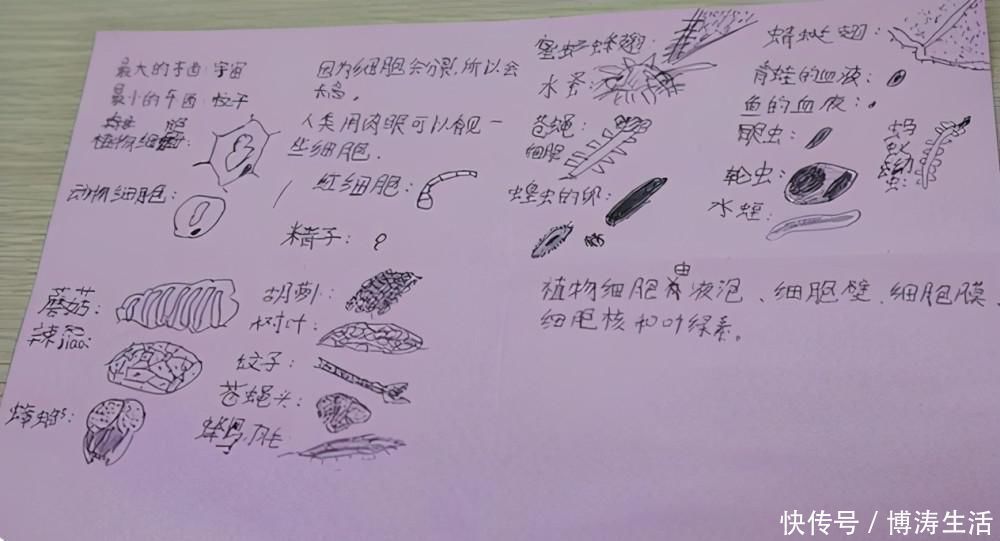 最大的东西:宇宙
最小的东西:粒子
植物细胞:
动物细胞:
因为细胞会分裂,所以会
长高。
人类用肉眼可以看见一
些细胞.
红细胞:
精子:
蘑菇:
辣jiao:
蟑螂:
胡萝卜:
树叶:
蚊子:
苍蝇头:
蜂鸟
蜜蜂
翅:
水蚤:
苍蝇:
细胞
蝗虫的卵:
蜻蜓翅:
青蛙的血液:
鱼的血液:
眼虫:
轮虫:
水蛭:
蚂
蚁
幼
虫:
植物细胞由液泡、细胞壁、细胞膜、
细胞核和叶绿素。
快传号/博涛生活